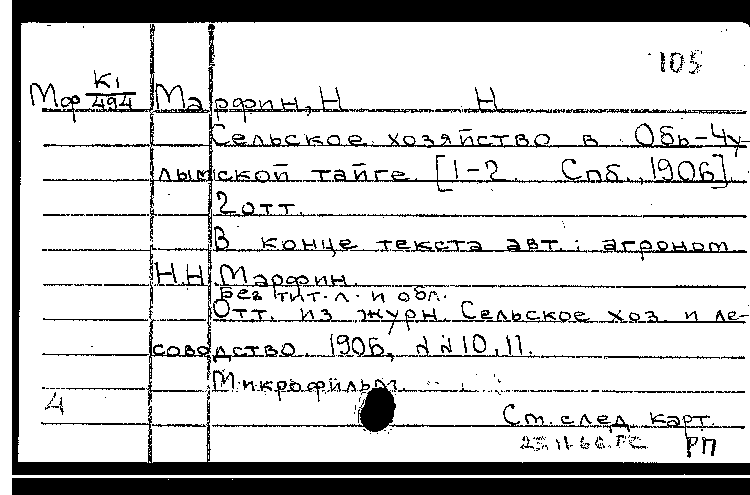 105
Мф К1/494 Марфин, Н Н
Сельское хозяйство в Обь-Чу-
лымской тайге. [1-2. Спб., 1906].
2 отт.
В конце текста авт.: агроном
Н.Н. Марфин.
Без тит. л. и обл.
Отт. из журн. Сельское хоз. и ле-
соводство. 1906, №№ 10, 11.
Микрофильм.
4
См. след карт.
РП